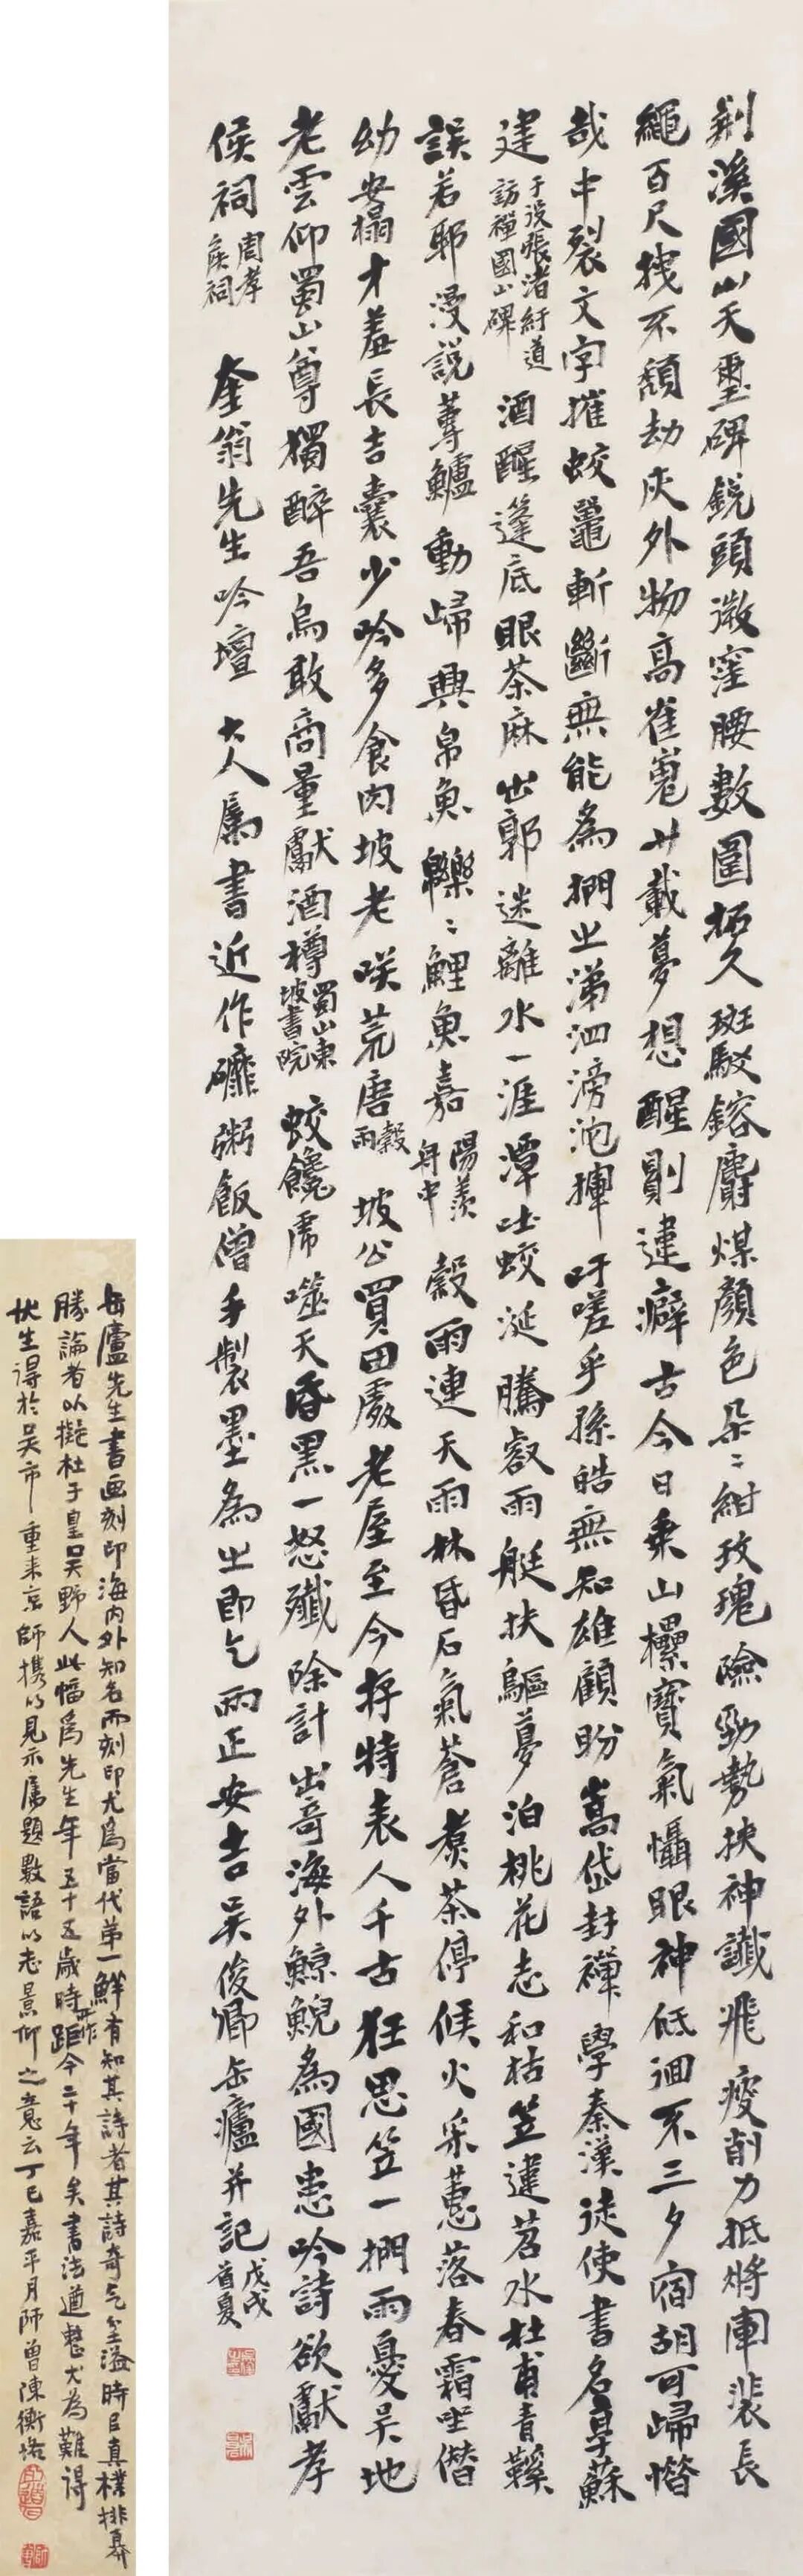 荊溪國山天璽碑銳頭微窪腰數圍拓久斑駁鎔麝煤顏色朵〻紺玫瑰險勁勢挾神讖飛瘦削力抵將軍裴長
繩百尺拽不頹劫灰外物高崔嵬廿載夢想醒則違癖古今日乘山欙寶氣懾眼神低徊不三夕宿胡可歸惜
哉中裂文字摧蛟鼉斬斷無能為捫之涕泗滂沱揮吁嗟乎孫皓無知雄顧盼嵩岱封禪學秦漢徒使書名皐蘇
建 于役張渚紆道訪禪國山碑 酒醒篷底眼茶麻出郭迷離水一涯潭吐蛟涎騰敼雨艇扶驅夢泊桃花志和枯笠違苕水杜甫青鞵
誤若耶漫說蓴鱸動歸興帛魚轢〻鯉魚嘉 陽羨舟中 穀雨連天雨林昏石氣蒼煑茶停候火采蕙落春霜坐借
幼安榻才羞長吉囊少吟多食肉坡老咲荒唐 穀雨 坡公買田處老屋至今存特表人千古狂思笠一捫雨憂吳地
老雲仰蜀山尊獨醉吾烏敢商量獻酒樽 蜀山東坡書院 蛟饞虎噬天昏黑一怒殲除計出奇海外鯨鯢為國患吟詩欲獻孝
侯祠 周孝侯祠 奎翁先生吟壇 大人屬書近作礳粥飯僧手製墨為之即乞兩正安吉吳俊卿缶廬并記 戊戌首夏
缶廬先生書画刻印海内外知名而刻印尤為當代第一鮮有知其詩者其詩奇气坌溢時呂真樸排奡
勝論者以擬杜于皇吳野人此幅為先生年五十五歲時所作距今二十年矣書法遒整尤為難得
伏生得於吴市重来京師携以見示屬題數語以志景仰之意云丁巳嘉平月師曾陳衡恪